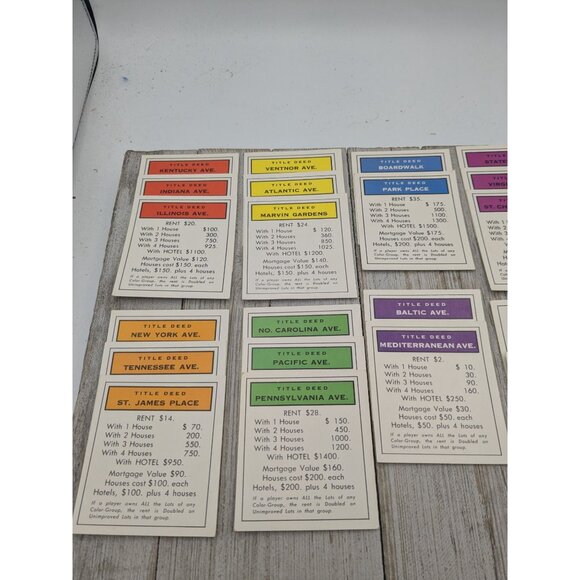 TITLE DEED
KENTUCKY AVE.
TITLE DEED
INDIANA AVE.
TITLE DEED
ILLINOIS AVE.
RENT $20.
With 1 House $100.
With 2 Houses 300.
With 3 Houses 750.
With 4 Houses 925.
With HOTEL $1100.
Mortgage Value $120.
Houses cost $150. each
Hotels, $150. plus 4 houses
If a player owns ALL the Lots of any
Color-Group, the rent is Doubled on
Unimproved Lots in that group.
TITLE DEED
VENTNOR AVE.
TITLE DEED
ATLANTIC AVE.
TITLE DEED
MARVIN GARDENS
RENT $24.
With 1 House $120.
With 2 Houses 360.
With 3 Houses 850.
With 4 Houses 1025.
With HOTEL $1200.
Mortgage Value $140.
Houses cost $150. each
Hotels, $150. plus 4 houses
If a player owns ALL the Lots of any
Color-Group, the rent is Doubled on
Unimproved Lots in that group.
TITLE DEED
BOARDWALK
TITLE DEED
PARK PLACE
RENT $35.
With 1 House $175.
With 2 Houses 500.
With 3 Houses 1100.
With 4 Houses 1300.
With HOTEL $1500.
Mortgage Value $175.
Houses cost $200. each
Hotels, $200. plus 4 houses
If a player owns ALL the Lots of any
Color-Group, the rent is Doubled on
Unimproved Lots in that group.
TITLE DEED
NEW YORK AVE.
TITLE DEED
TENNESSEE AVE.
TITLE DEED
ST. JAMES PLACE
RENT $14.
With 1 House $70.
With 2 Houses 200.
With 3 Houses 550.
With 4 Houses 750.
With HOTEL $950.
Mortgage Value $90.
Houses cost $100. each
Hotels, $100. plus 4 houses
If a player owns ALL the Lots of any
Color-Group, the rent is Doubled on
Unimproved Lots in that group.
TITLE DEED
NO. CAROLINA AVE.
TITLE DEED
PACIFIC AVE.
TITLE DEED
PENNSYLVANIA AVE.
RENT $28.
With 1 House $150.
With 2 Houses 450.
With 3 Houses 1000.
With 4 Houses 1200.
With HOTEL $1400.
Mortgage Value $160.
Houses cost $200. each
Hotels, $200. plus 4 houses
If a player owns ALL the Lots of any
Color-Group, the rent is Doubled on
Unimproved Lots in that group.
TITLE DEED
BALTIC AVE.
TITLE DEED
MEDITERRANEAN AVE.
RENT $2.
With 1 House $10.
With 2 Houses 30.
With 3 Houses 90.
With 4 Houses 160.
With HOTEL $250.
Mortgage Value $30.
Houses cost $50. each
Hotels, $50. plus 4 houses
If a player owns ALL the Lots of any
Color-Group, the rent is Doubled on
Unimproved Lots in that group.